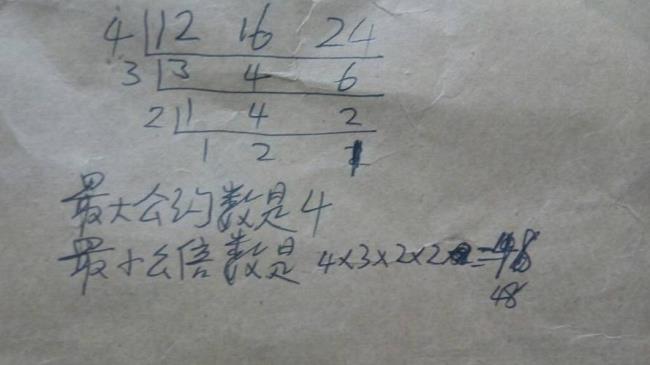 4 12 16 24
3 3 4 6
2 1 4 2
1 2 1
最大公约数是4
最小公倍数是 4×3×2×2=48
48